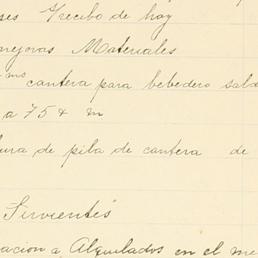 ses 7 recibo de hoy
mejoras Materiales
ms cantera para bebedero sala
a 75 ¢ m
ura de pila de cantera de
"Sirvientes"
acion a Alquilados en el me